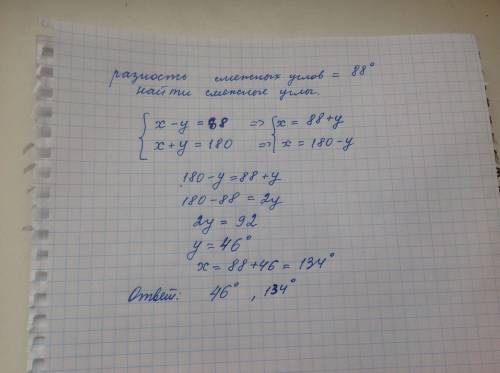 разность смежных углов = 88°
найти смежные углы.
{ x - y = 88 => { x = 88 + y
x + y = 180 => x = 180 - y
180 - y = 88 + y
180 - 88 = 2y
2y = 92
y = 46°
x = 88 + 46 = 134°
Ответ: 46°, 134°